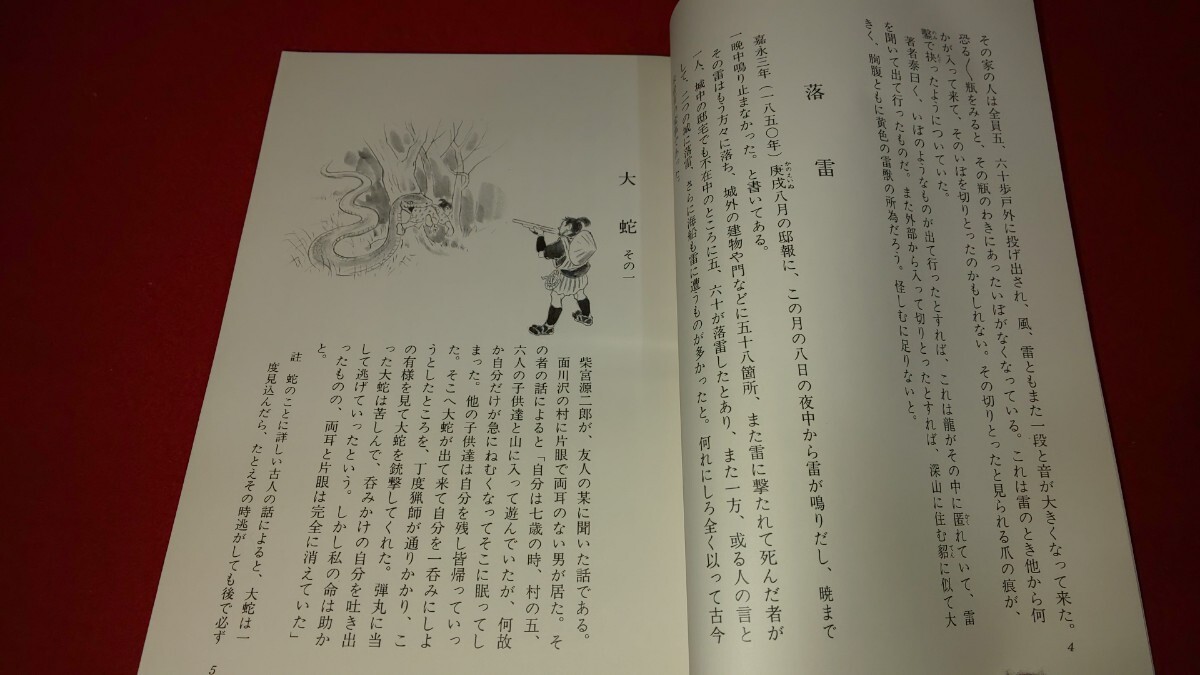 その家の人は全員五、六十歩戸外に投げ出され、風、雷ともまた一段と音が大きくなって来た。
恐る〱瓶をみると、その瓶のわきにあったいぼがなくなっている。これは雷のとき他から何
かが入って来て、そのいぼを切りとったのかもしれない。その切りとったと見られる爪の痕が、
鑿で抉ったようについていた。
著者泰曰く、いぼのようなものが出て行ったとすれば、これは龍がその中に匿れていて、雷
を聞いて出て行ったものだ。また外部から入って切りとったとすれば、深山に住む貂に似て大
きく、胸腹ともに黄色の雷獣の所為だろう。怪しむに足りないと。
落雷
嘉永三年(一八五〇年)庚戌八月の邸報に、この月の八日の夜中から雷が鳴りだし、暁まで
一晩中鳴り止まなかった。と書いてある。
その雷はもう方々に落ち、城外の建物や門などに五十八箇所、また雷に撃たれて死んだ者が
一人、城中の邸宅でも不在中のところに五、六十が落雷したとあり、また一方、或る人の言と
して、二つの城に落雷、さらに海船も雷に遭うものが多かったと。何れにしろ全く以って古今
4
大蛇 その一
柴宮源二郎が、友人の某に聞いた話である。
面川沢の村に片眼で両耳のない男が居た。そ
の者の話によると「自分は七歳の時、村の五、
六人の子供達と山に入って遊んでいたが、何故
か自分だけが急にねむくなってそこに眠ってし
まった。他の子供達は自分を残し皆帰っていっ
た。そこへ大蛇が出て来て自分を一呑みにしよ
うとしたところを、丁度猟師が通りかかり、こ
の有様を見て大蛇を銃撃してくれた。弾丸に当
った大蛇は苦しんで、呑みかけの自分を吐き出
して逃げていったという。しかし私の命は助か
ったものの、両耳と片眼は完全に消えていた」
と。
註 蛇のことに詳しい古人の話によると、大蛇は一
度見込んだら、たとえその時逃がしても後で必ず
5